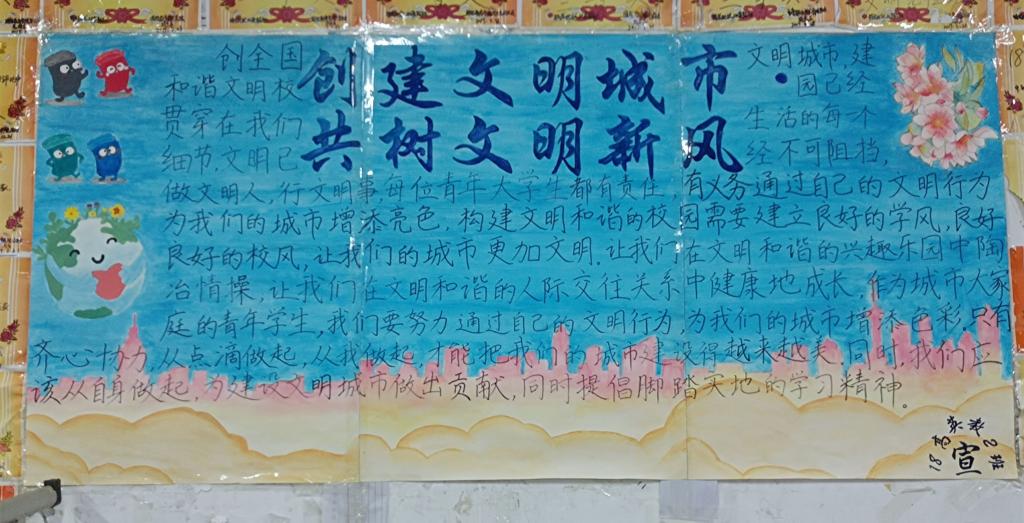 创建文明城市
共树文明新风
创全国文明城市,建
和谐文明校园已经
贯穿在我们生活的每个
细节,文明已经不可阻档,
做文明人,行文明事,每位青年大学生都有责任,有义务通过自己的文明行为
为我们的城市增添亮色,构建文明和谐的校园需要建立良好的学风,良好
良好的校风,让我们的城市更加文明.让我们在文明和谐的兴趣乐园中陶
冶情操,让我们在文明和谐的人际交往关系中健康地成长,作为城市大家
庭的青年学生,我们要努力通过自己的文明行为,为我们的城市增添色彩.只有
齐心协力,从点滴做起,从我做起,才能把我们的城市建设得越来越美.同时,我们应
该从自身做起,为建设文明城市做出贡献,同时提倡脚踏实地的学习精神。
18高
2班
宣